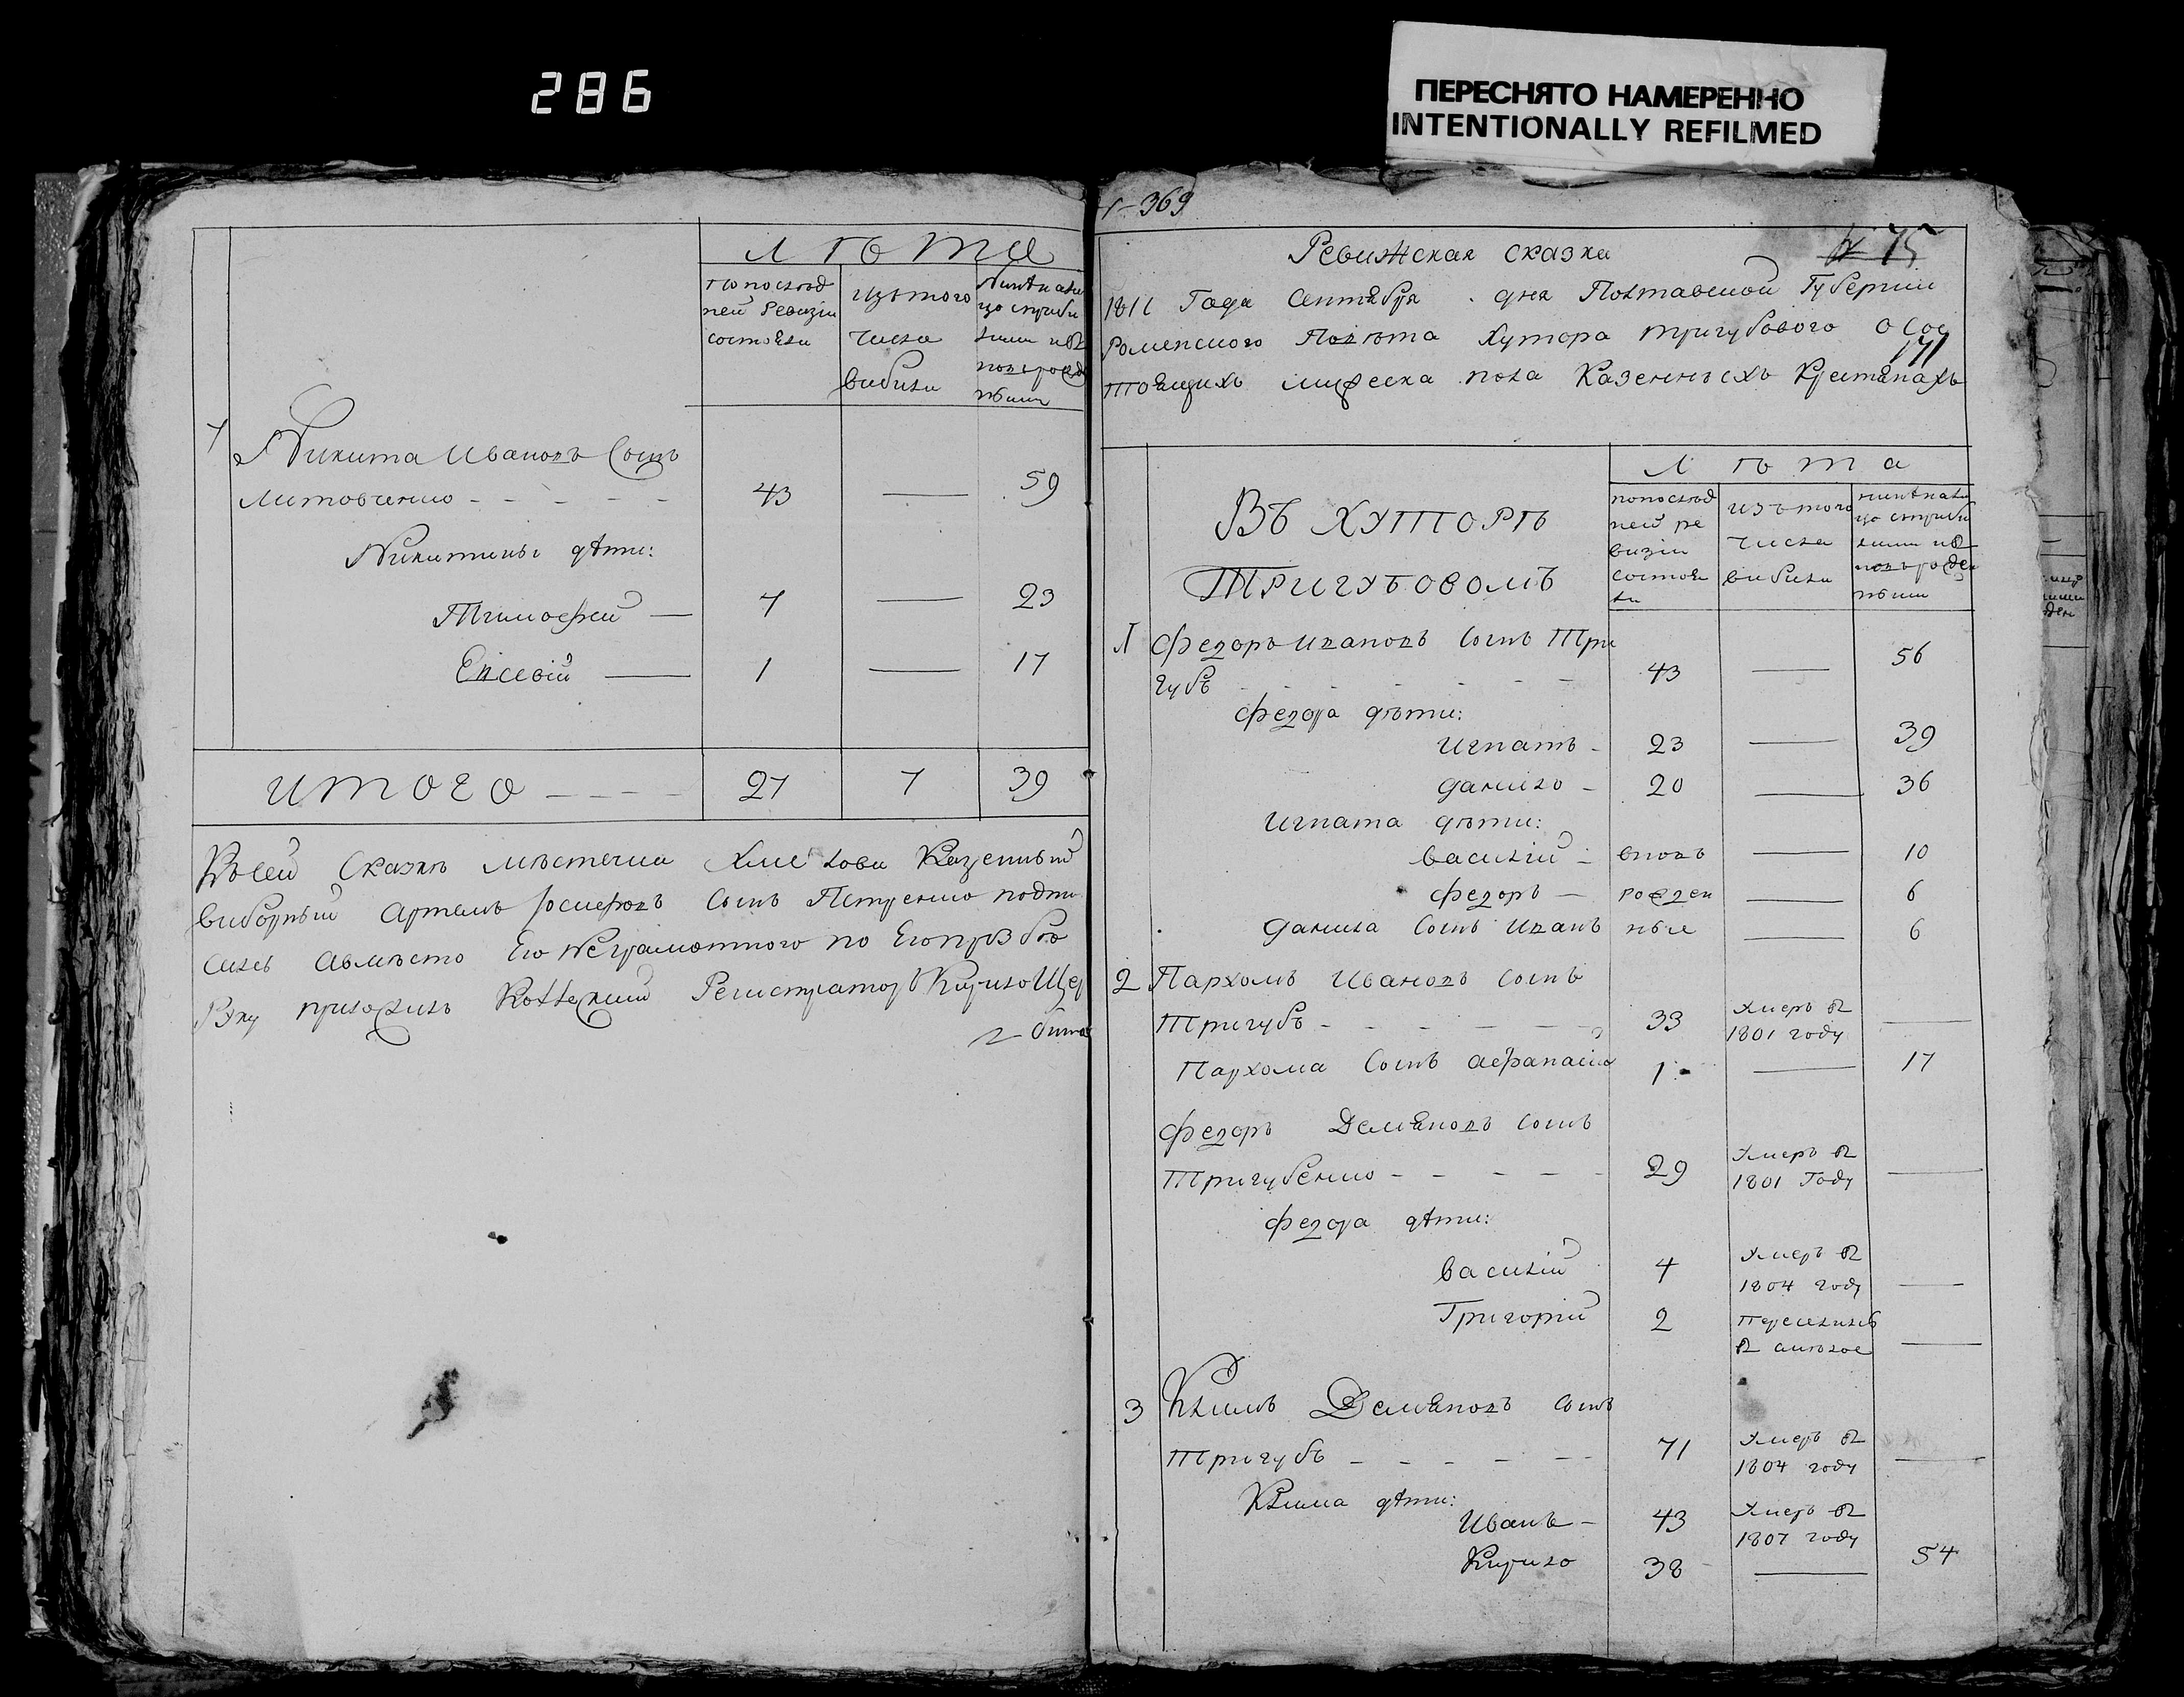 286
ПЕРЕСНЯТО НАМЕРЕННО
INTENTIONALLY REFILMED
лѣта
попослѣд
ней Ревизіи
состояли
изътого
числа
вибили
нинѣнали
цо стриби
лими ивъ
новърожд
ными
7
Никита Ивановъ Сынъ
Литовченко - - - - - 43 — 59
Никитины дѣти:
Тимофей — 7 — 23
Елсевій — 1 — 17
итого - - - - 27 7 39
Ксей Сказкѣ мѣстечка Хмелова Казенный
виборный Артемъ сынъ Петренко подпи
салсь авмѣсто Его Неграмотного по Егопрозбѣ
Руку приложилъ Коллежкий Регистраторъ Кирило
1-369
Ревижская сказка
№ 75
1811 Года Сентября дня Полтавской Губернии
Роменского Повѣта Хутора тригубового о Сос
171
тоящихъ мужеска пола Казенныхъ Крестянахъ
Въ хуторѣ
Тригубовомъ
лѣта
попослѣд
ней ре
визіи
состоя
ли
изътого
числа
вибили
нинѣнали
цо стриби
лими ивъ
новърожден
ными
1 Федоръ ивановъ Сынъ Три
губъ - - - - - 43 — 56
Федора дѣти:
Игнатъ - 23 — 39
данило - 20 — 36
Игната дѣти:
василій - вновъ — 10
Федоръ — рожден — 6
Данила Сынъ иванъ ные — 6
2 Пархомъ Ивановъ сынъ
Тригубъ - - - - - 33 Умеръ в
1801 году —
Пархома Сынъ афанасій 1 — 17
Федоръ Демяновъ сынъ
Тригубенко - - - - - 29 Умеръ в
1801 Году —
Федора дѣти:
василій 4 Умеръ в
1804 году —
Григорій 2 Переселилсь
в
3 Климъ Демяновъ сынъ
Тригубъ - - - - - 71 Умеръ в
1804 году —
Клима дѣти:
Иванъ - 43 Умеръ в
1807 году
Кирило 38 — 54